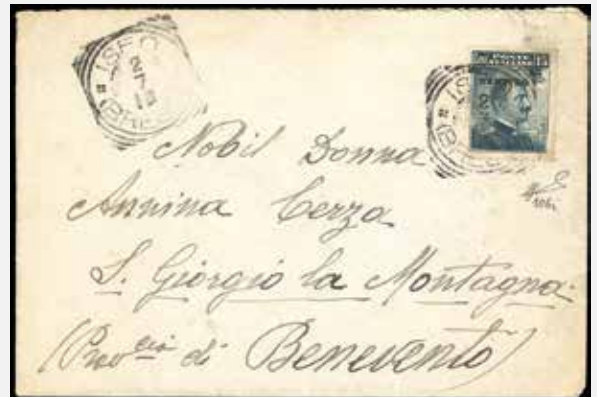 POSTE ITALIANE 15
Nobil Donna
Annina Cerza
S. Giorgio la Montagna
(Prov.cia di Benevento)